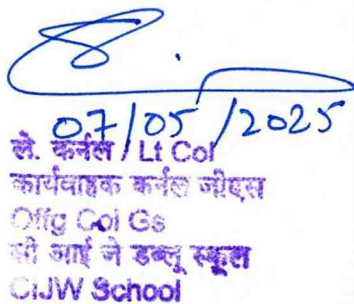 07/05/2025
ले. कर्नल / Lt Col
कार्यवाहक कर्नल जीएस
Offg Col Gs
सी आई जे डब्लू स्कूल
CIJW School